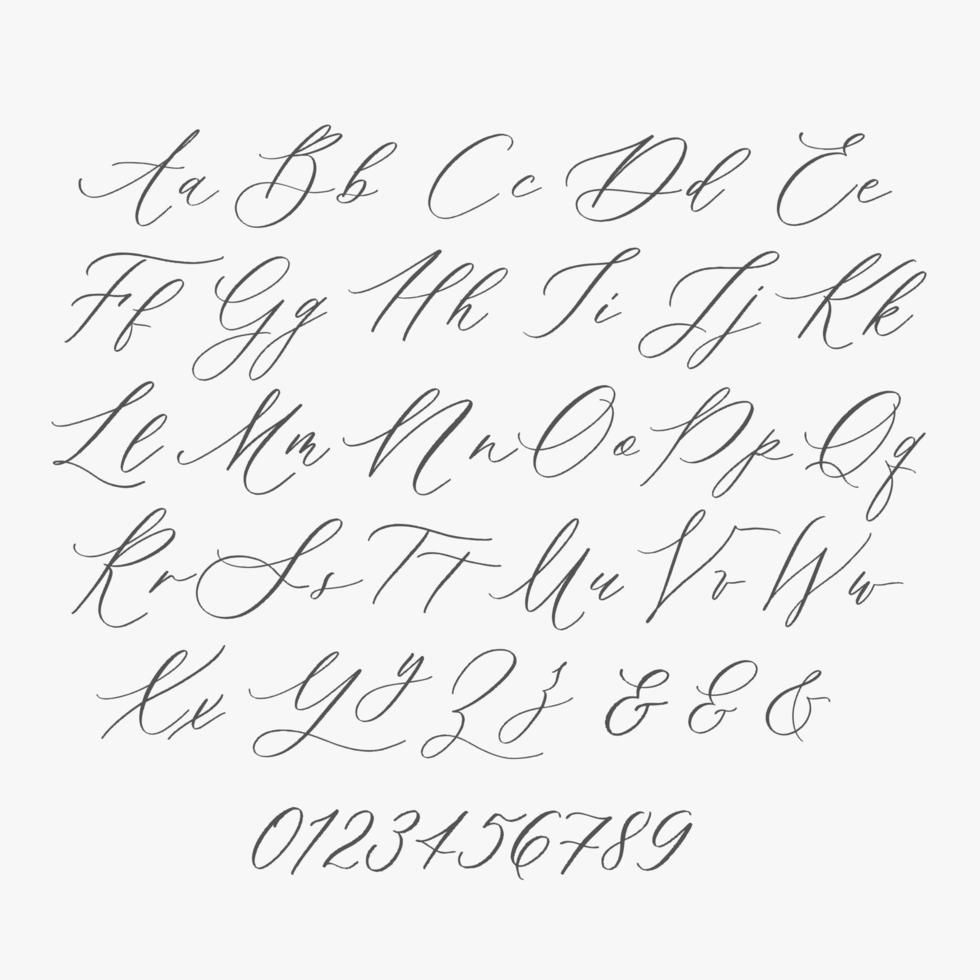 Aa Bb Cc Dd Ee
Ff Gg Hh Ii Jj Kk
Ll Mm Nn Oo Pp Qq
Rr Ss Tt Uu Vv Ww
Xx Yy Zz & & &
0123456789